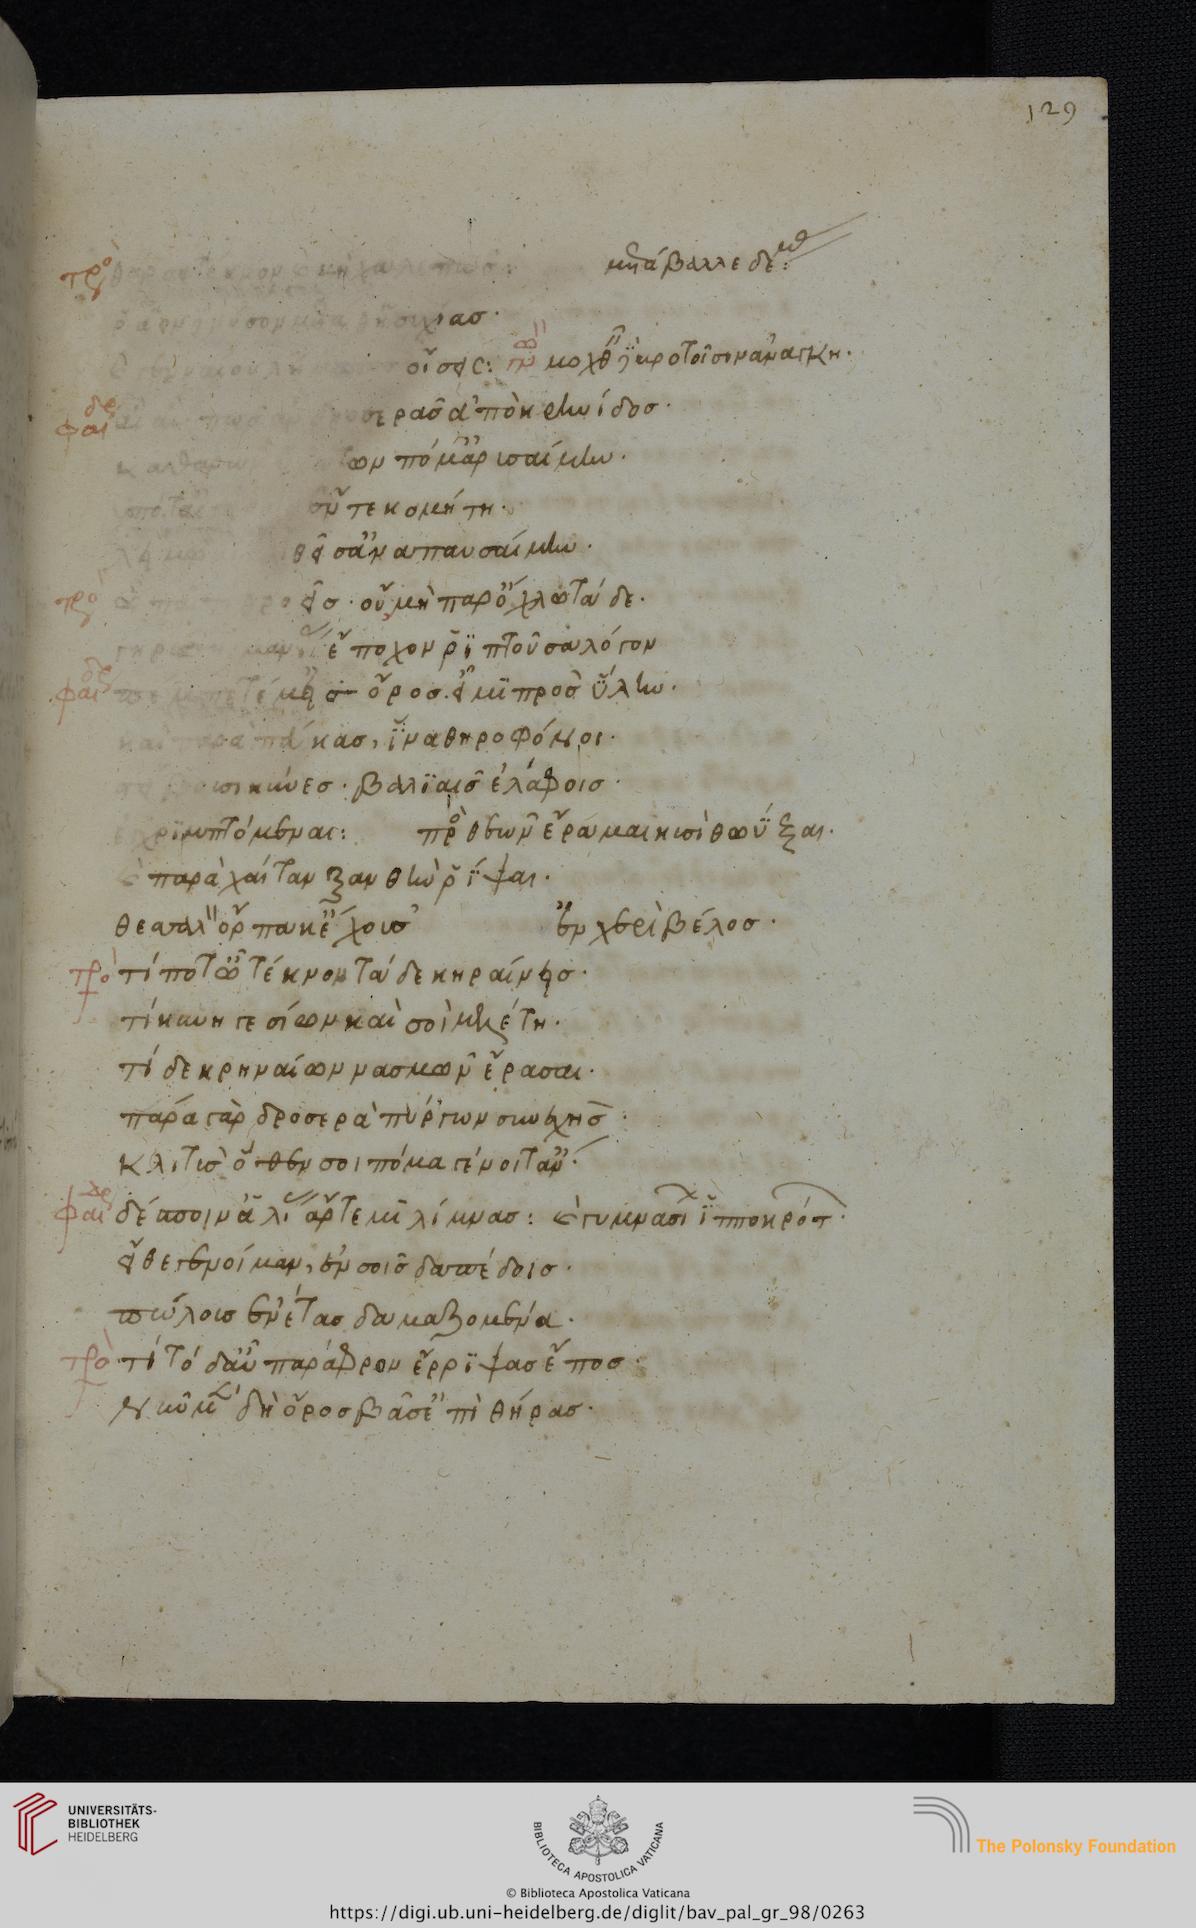 129
τρο μετάβαλλε δέμας:
ἡσυχίας·
οἴσεις: μοχθεῖν βροτοῖσιν ἀνάγκη·
φαιδρ δροσερᾶς ἀπὸ κρηνίδος·
καθαρῶν πόμ' ἀρυσαίμην·
ὑπό τ' ἔν τε κομήτη·
λειμῶνι κλιθεῖσ' ἀναπαυσαίμην·
τρο ὦ παῖ τί θροεῖς· οὐ μὴ παρ' ὄχλω τάδε·
γηρύση μανίας ἔποχον ῥίπτουσα λόγον
φαιδρ πέμπετέ μ' εἰς ὄρος· εἶμι πρὸς ὕλην·
καὶ παρὰ πεύκας, ἵνα θηροφόνοι·
στείβουσι κύνες· βαλιαῖς ἐλάφοις·
ἐγχριμπτόμεναι: πρὸς θεῶν ἔραμαι κυσὶ θωΰξαι·
καὶ παρὰ χαίταν ξανθὴν ῥίψαι·
θεσσαλὸν ὅρπακ' ἔχουσ' ἐν χειρὶ βέλος·
τρο τί ποτ' ὦ τέκνον τάδε κηραίνεις·
τί κυνηγεσίων καὶ σοὶ μελέτη·
τί δὲ κρηναίων νασμῶν ἔρασαι·
πάρα γὰρ δροσερὰ πύργων συνεχὴς·
κλιτὺς ὅθεν σοι πόμα γένοιτ' ἄν·
φαιδρ δέσποιν' ἁλίας ἄρτεμι λίμνας: καὶ γυμνασίων ἱπποκρότων·
εἴθε γενοίμαν, ἐν σοῖς δαπέδοις·
πώλους ἐνέτας δαμαζομένα·
τρο τί τόδ' αὖ παράφρον ἔρριψας ἔπος·
νῦν μὲν δὴ ὄρος βᾶσ' ἐπὶ θήρας·
UNIVERSITÄTS-
BIBLIOTHEK
HEIDELBERG
BIBLIOTECA APOSTOLICA VATICANA
The Polonsky Foundation
© Biblioteca Apostolica Vaticana
https://digi.ub.uni-heidelberg.de/diglit/bav_pal_gr_98/0263